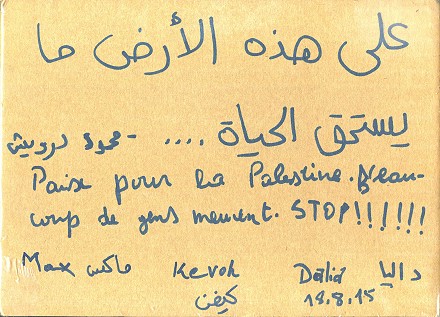 على هذه الأرض ما
يستحق الحياة .... - محمود درويش
Paix pour la Palestine. Beau-
coup de gens meurent. STOP!!!!!!
Max ماكس Kevoh Dalia داليا
كيفن 18.8.15